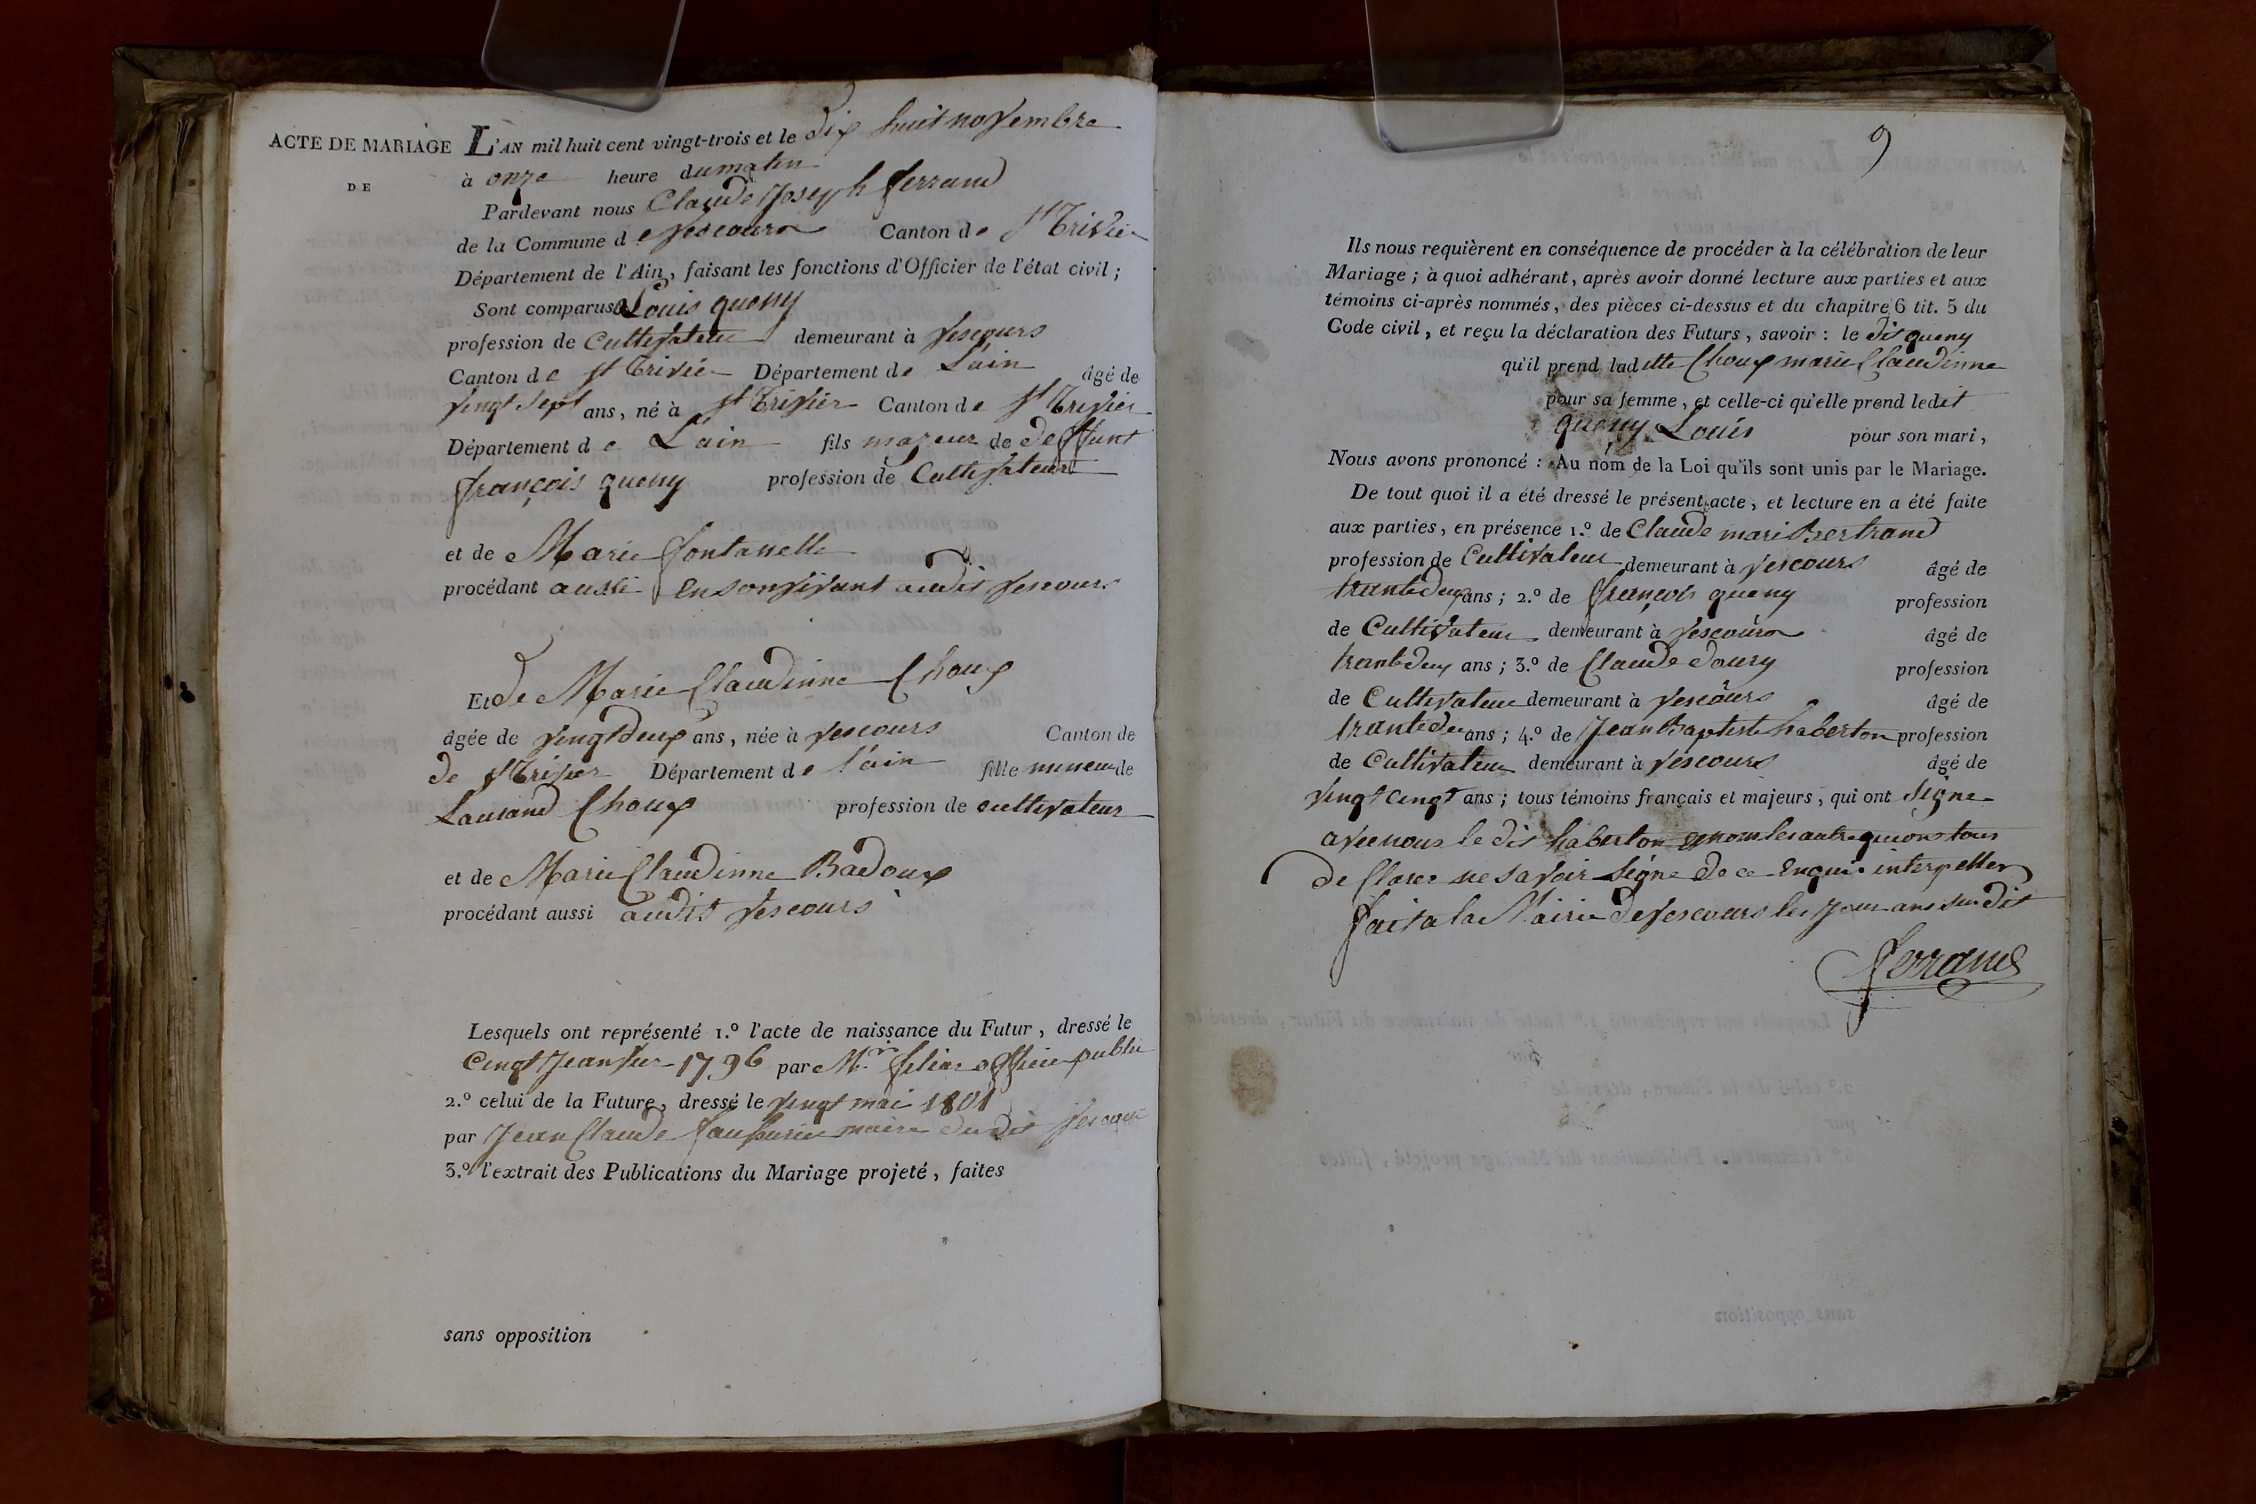 ACTE DE MARIAGE
DE
L'AN mil huit cent vingt-trois et le dix huit novembre
à onze heure du matin
Pardevant nous Claude Joseph ferrand
de la Commune de Vescours Canton de St Trivier
Département de l'Ain, faisant les fonctions d'Officier de l'état civil ;
Sont comparus Louis queny
profession de Cultivateur demeurant à Vescours
Canton de St Trivier Département de Lain âgé de
vingt sept ans, né à St Trivier Canton de St Trivier
Département de Lain fils majeur de deffunt
françois queny profession de Cultivateur
et de Marie fontanelle
procédant aussi en son vivant audit Vescours
Et de Marie Claudinne Choux
âgée de vingt deux ans, née à Vescours Canton de
de St Trivier Département de l'ain fille mineur de
Laurand Choux profession de cultivateur
et de Marie Claudinne Badoux
procédant aussi audit Vescours
Lesquels ont représenté 1.º l'acte de naissance du Futur, dressé le
Cinqt Jeanvier 1796 par Mr. officie public
2.º celui de la Future, dressé le vingt mai 1801
par Jean Claude maire dudit Vescours
3.º l'extrait des Publications du Mariage projeté, faites
sans opposition
9
Ils nous requièrent en conséquence de procéder à la célébration de leur
Mariage ; à quoi adhérant, après avoir donné lecture aux parties et aux
témoins ci-après nommés, des pièces ci-dessus et du chapitre 6 tit. 5 du
Code civil, et reçu la déclaration des Futurs, savoir : le dit queny
qu'il prend laditte Choux marie Claudinne
pour sa femme, et celle-ci qu'elle prend ledit
queny Louis pour son mari,
Nous avons prononcé : Au nom de la Loi qu'ils sont unis par le Mariage.
De tout quoi il a été dressé le présent acte, et lecture en a été faite
aux parties, en présence 1.º de Claude mari Bertrand
profession de Cultivateur demeurant à Vescours âgé de
trante deux ans ; 2.º de françois queny profession
de Cultivateur demeurant à Vescours âgé de
trante deux ans ; 3.º de Claude doury profession
de Cultivateur demeurant à Vescours âgé de
trante deu ans ; 4.º de Jean Baptiste haberton profession
de Cultivateur demeurant à Vescours âgé de
vingt cinqt ans ; tous témoins français et majeurs, qui ont signe
avec nous le dit haberton et non les autre qui ons tous
de Clarer ne savoir signe de ce Enqui interpeller
fait a la Mairie de Vescours les Jour ans sur dit
ferrand